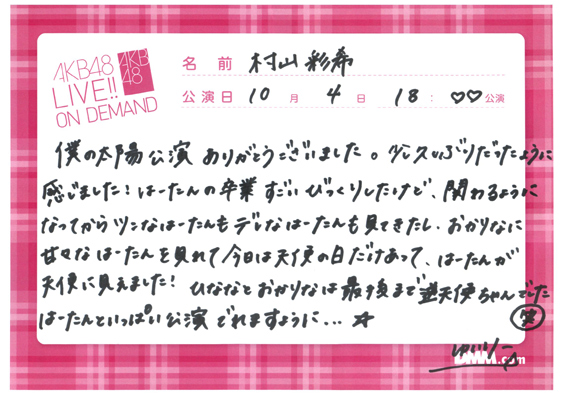 AKB48
LIVE!!
ON DEMAND
AKB
48
名前 村山彩希
公演日 10月4日 18:♡♡公演
僕の太陽公演ありがとうございました。少し久しぶりだったように
感じました!はーたんの卒業すごいびっくりしたけど、関わるように
なってからツンなはーたんもデレなはーたんも見てきたし、おかりなに
甘々なはーたんを見れて今日は天使の日だけあって、はーたんが
天使に見えました!ひななとおかりなは最後まで逆天使ちゃんでした
はーたんといっぱい公演でれますように...☆
笑
ゆいりー
DMM.com